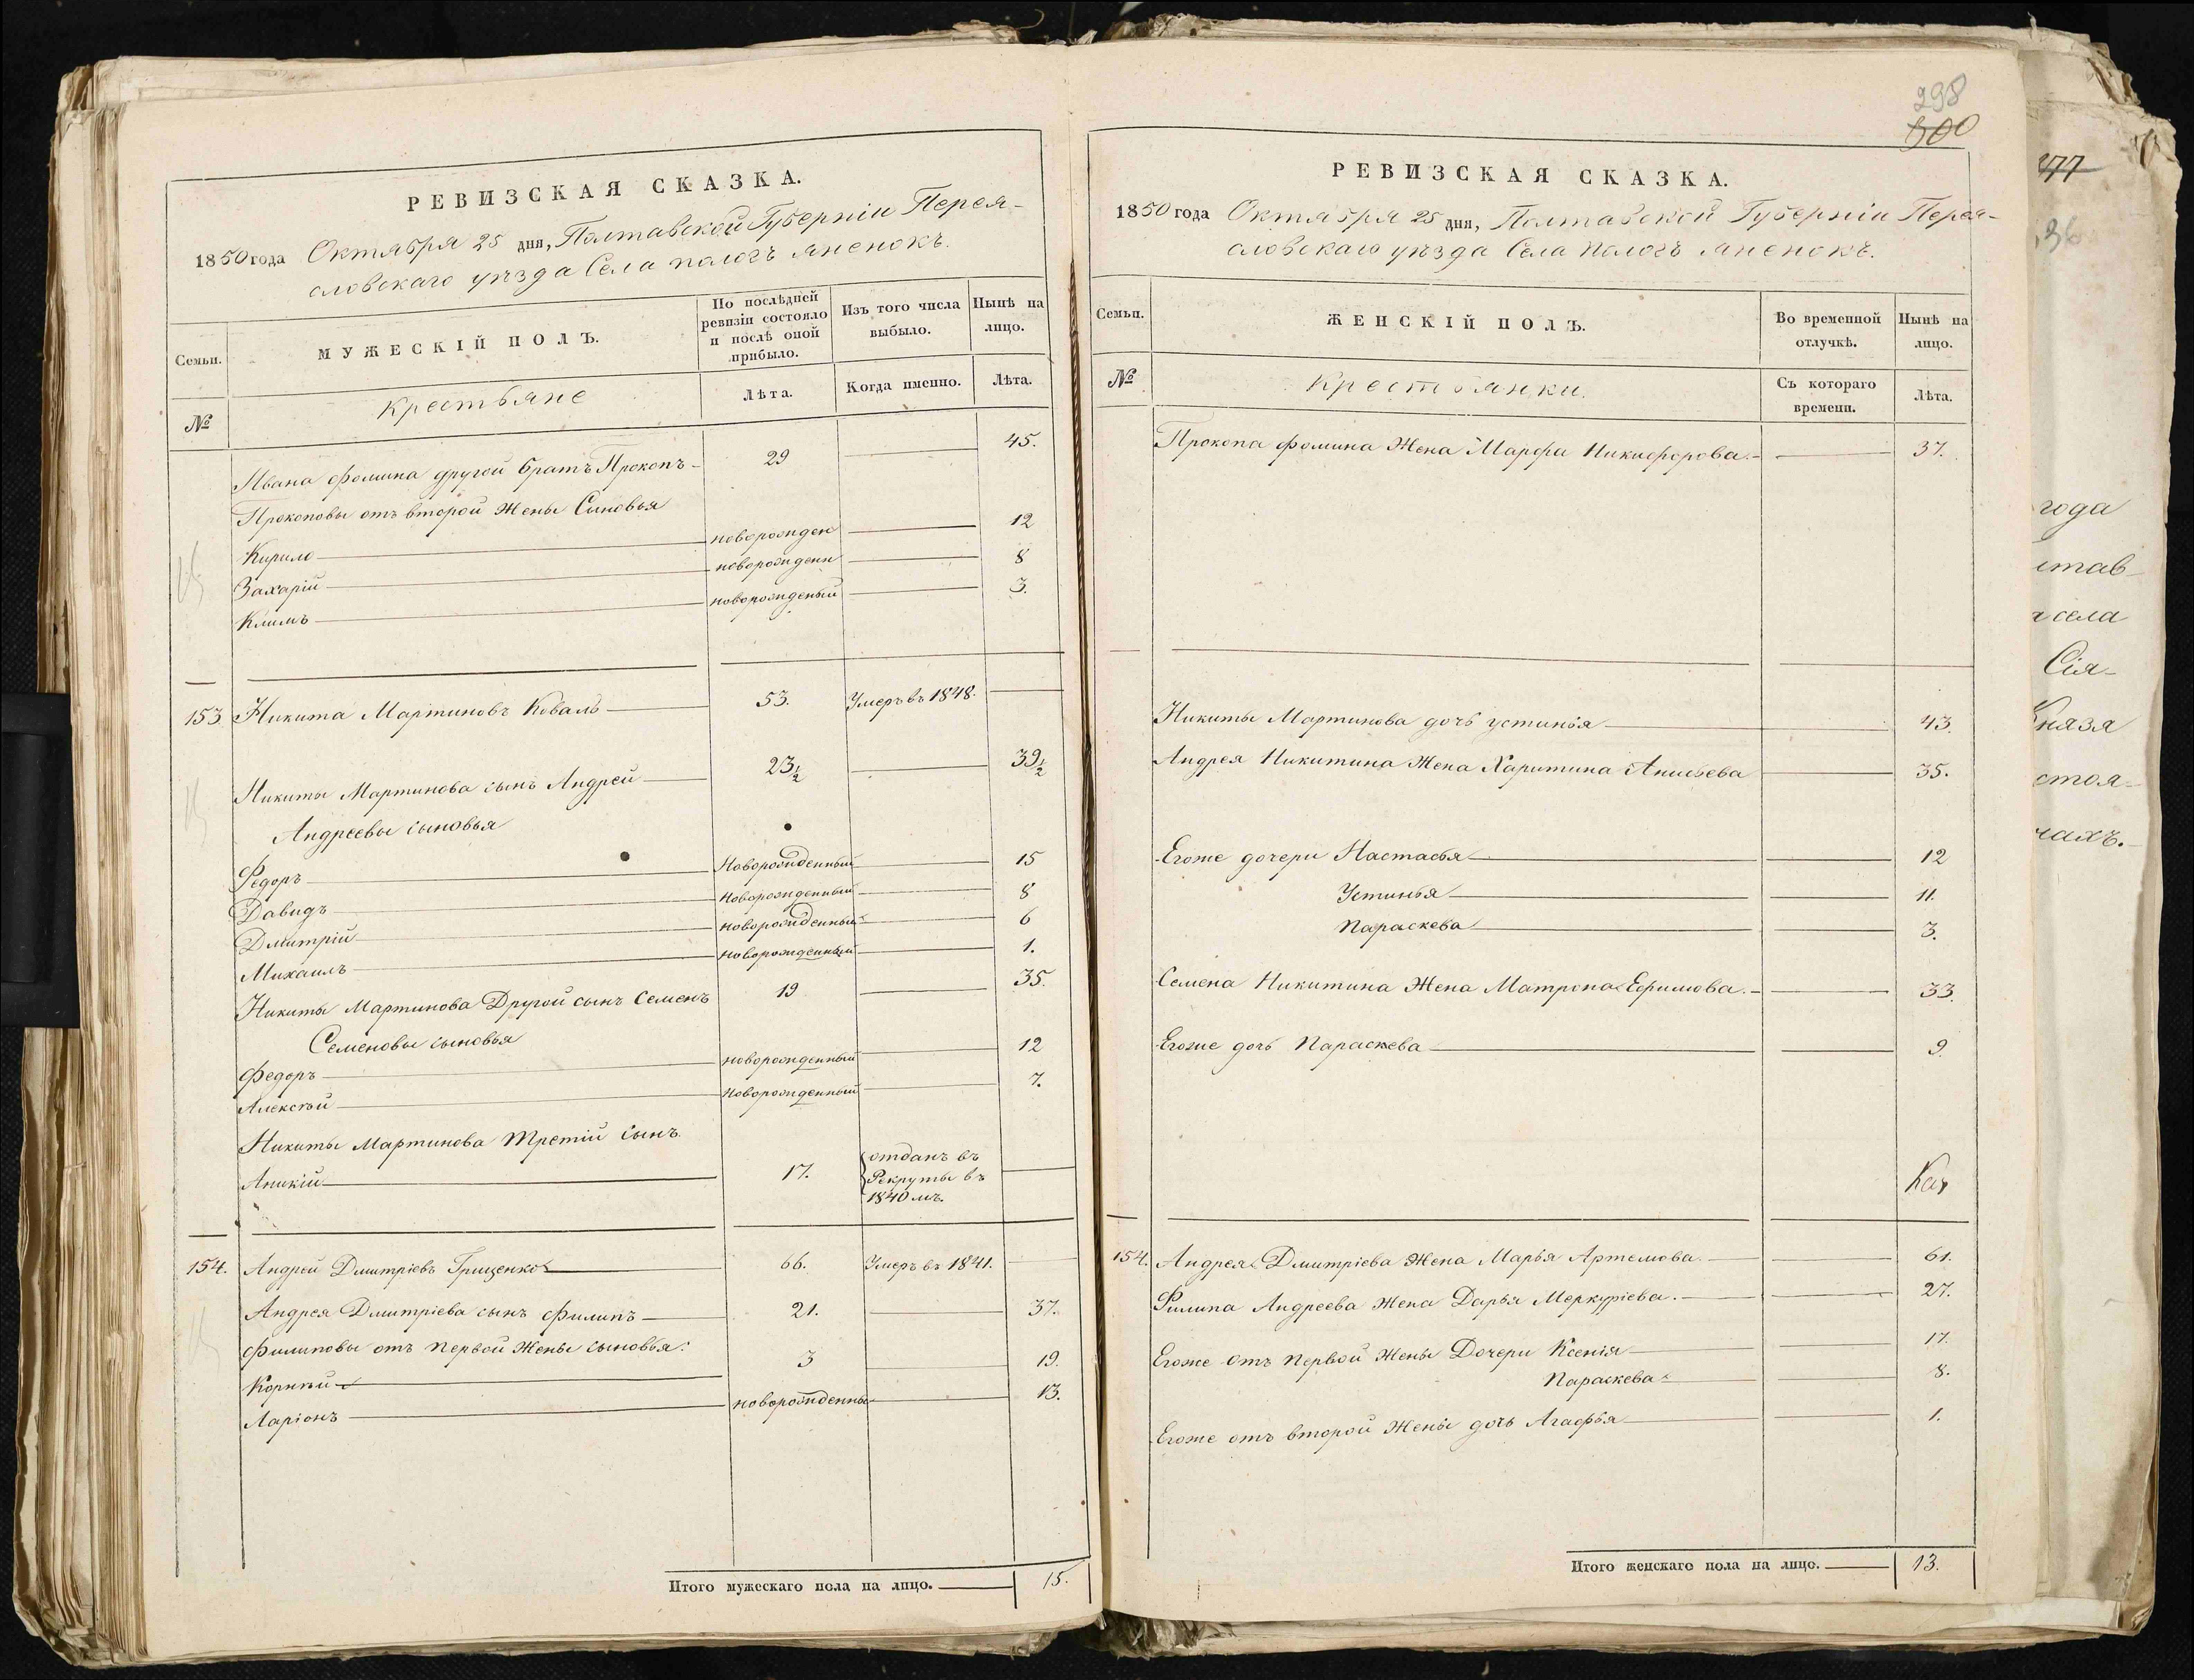 РЕВИЗСКАЯ СКАЗКА.
1850 года Октября 25 дня, Полтавской Губерніи Перея-
словскаго уѣзда Села пологъ яненокъ.
Семьи.
МУЖЕСКІЙ ПОЛЪ.
По послѣдней ревизіи состояло и послѣ оной прибыло.
Изъ того числа выбыло.
Нынѣ на лицо.
№
крестьяне
Лѣта.
Когда именно.
Лѣта.
Ивана Фомина другой братъ Прокопъ 29 45.
Прокоповы отъ второй жены Сыновья
Кирило новорожден 12
Захарій новорожденн 8
Климъ новорожденый 3.
153. Никита Мартиновъ Коваль 53. Умеръ въ 1848.
Никиты Мартинова сынъ Андрей 23½ 39½
Андреевы сыновья
Федоръ Новорожденный 15
Давидъ новорожденный 8
Дмитрій новорожденный 6
Михаилъ новорожденный 1.
Никиты Мартинова Другой сынъ Семенъ 19 35.
Семеновы сыновья
Федоръ новорожденный 12
Алексѣй новорожденный 7.
Никиты Мартинова Третій сынъ
Аникій 17. отданъ въ
Рекруты въ
1840 мъ.
154. Андрей Дмитріевъ Грищенко 66. Умеръ въ 1841.
Андрея Дмитріева сынъ Филипъ 21. 37.
Филиповы отъ первой жены сыновья:
Корнѣй 3 19.
Ларіонъ новорожденны 13.
Итого мужескаго пола на лицо. 15.
298
300
РЕВИЗСКАЯ СКАЗКА.
1850 года Октября 25 дня, Полтавской Губерніи Перея-
словскаго уѣзда Села пологъ яненокъ.
Семьи.
ЖЕНСКІЙ ПОЛЪ.
Во временной отлучкѣ.
Нынѣ на лицо.
№
Крестьянки.
Съ котораго времени.
Лѣта.
Прокопа Фомина Жена Марфа Никифорова. 37.
Никиты Мартинова дочь устинья 43.
Андрея Никитина Жена Харитина 35.
Егоже дочери Настасья 12
Устинья 11.
Параскева 3.
Семена Никитина Жена Матрона Ефимова. 33.
Егоже дочь Параскева 9.
154. Андрея Дмитріева Жена Марья Артемова. 61.
Филипа Андреева Жена Дарья Меркуріева. 27.
Егоже отъ первой Жены Дочери Ксенія 17.
Параскева 8.
Егоже отъ второй Жены дочь Агафья 1.
Итого женскаго пола на лицо. 13.
277
года
став-
села
Сія-
Князя
стоя-
чахъ.